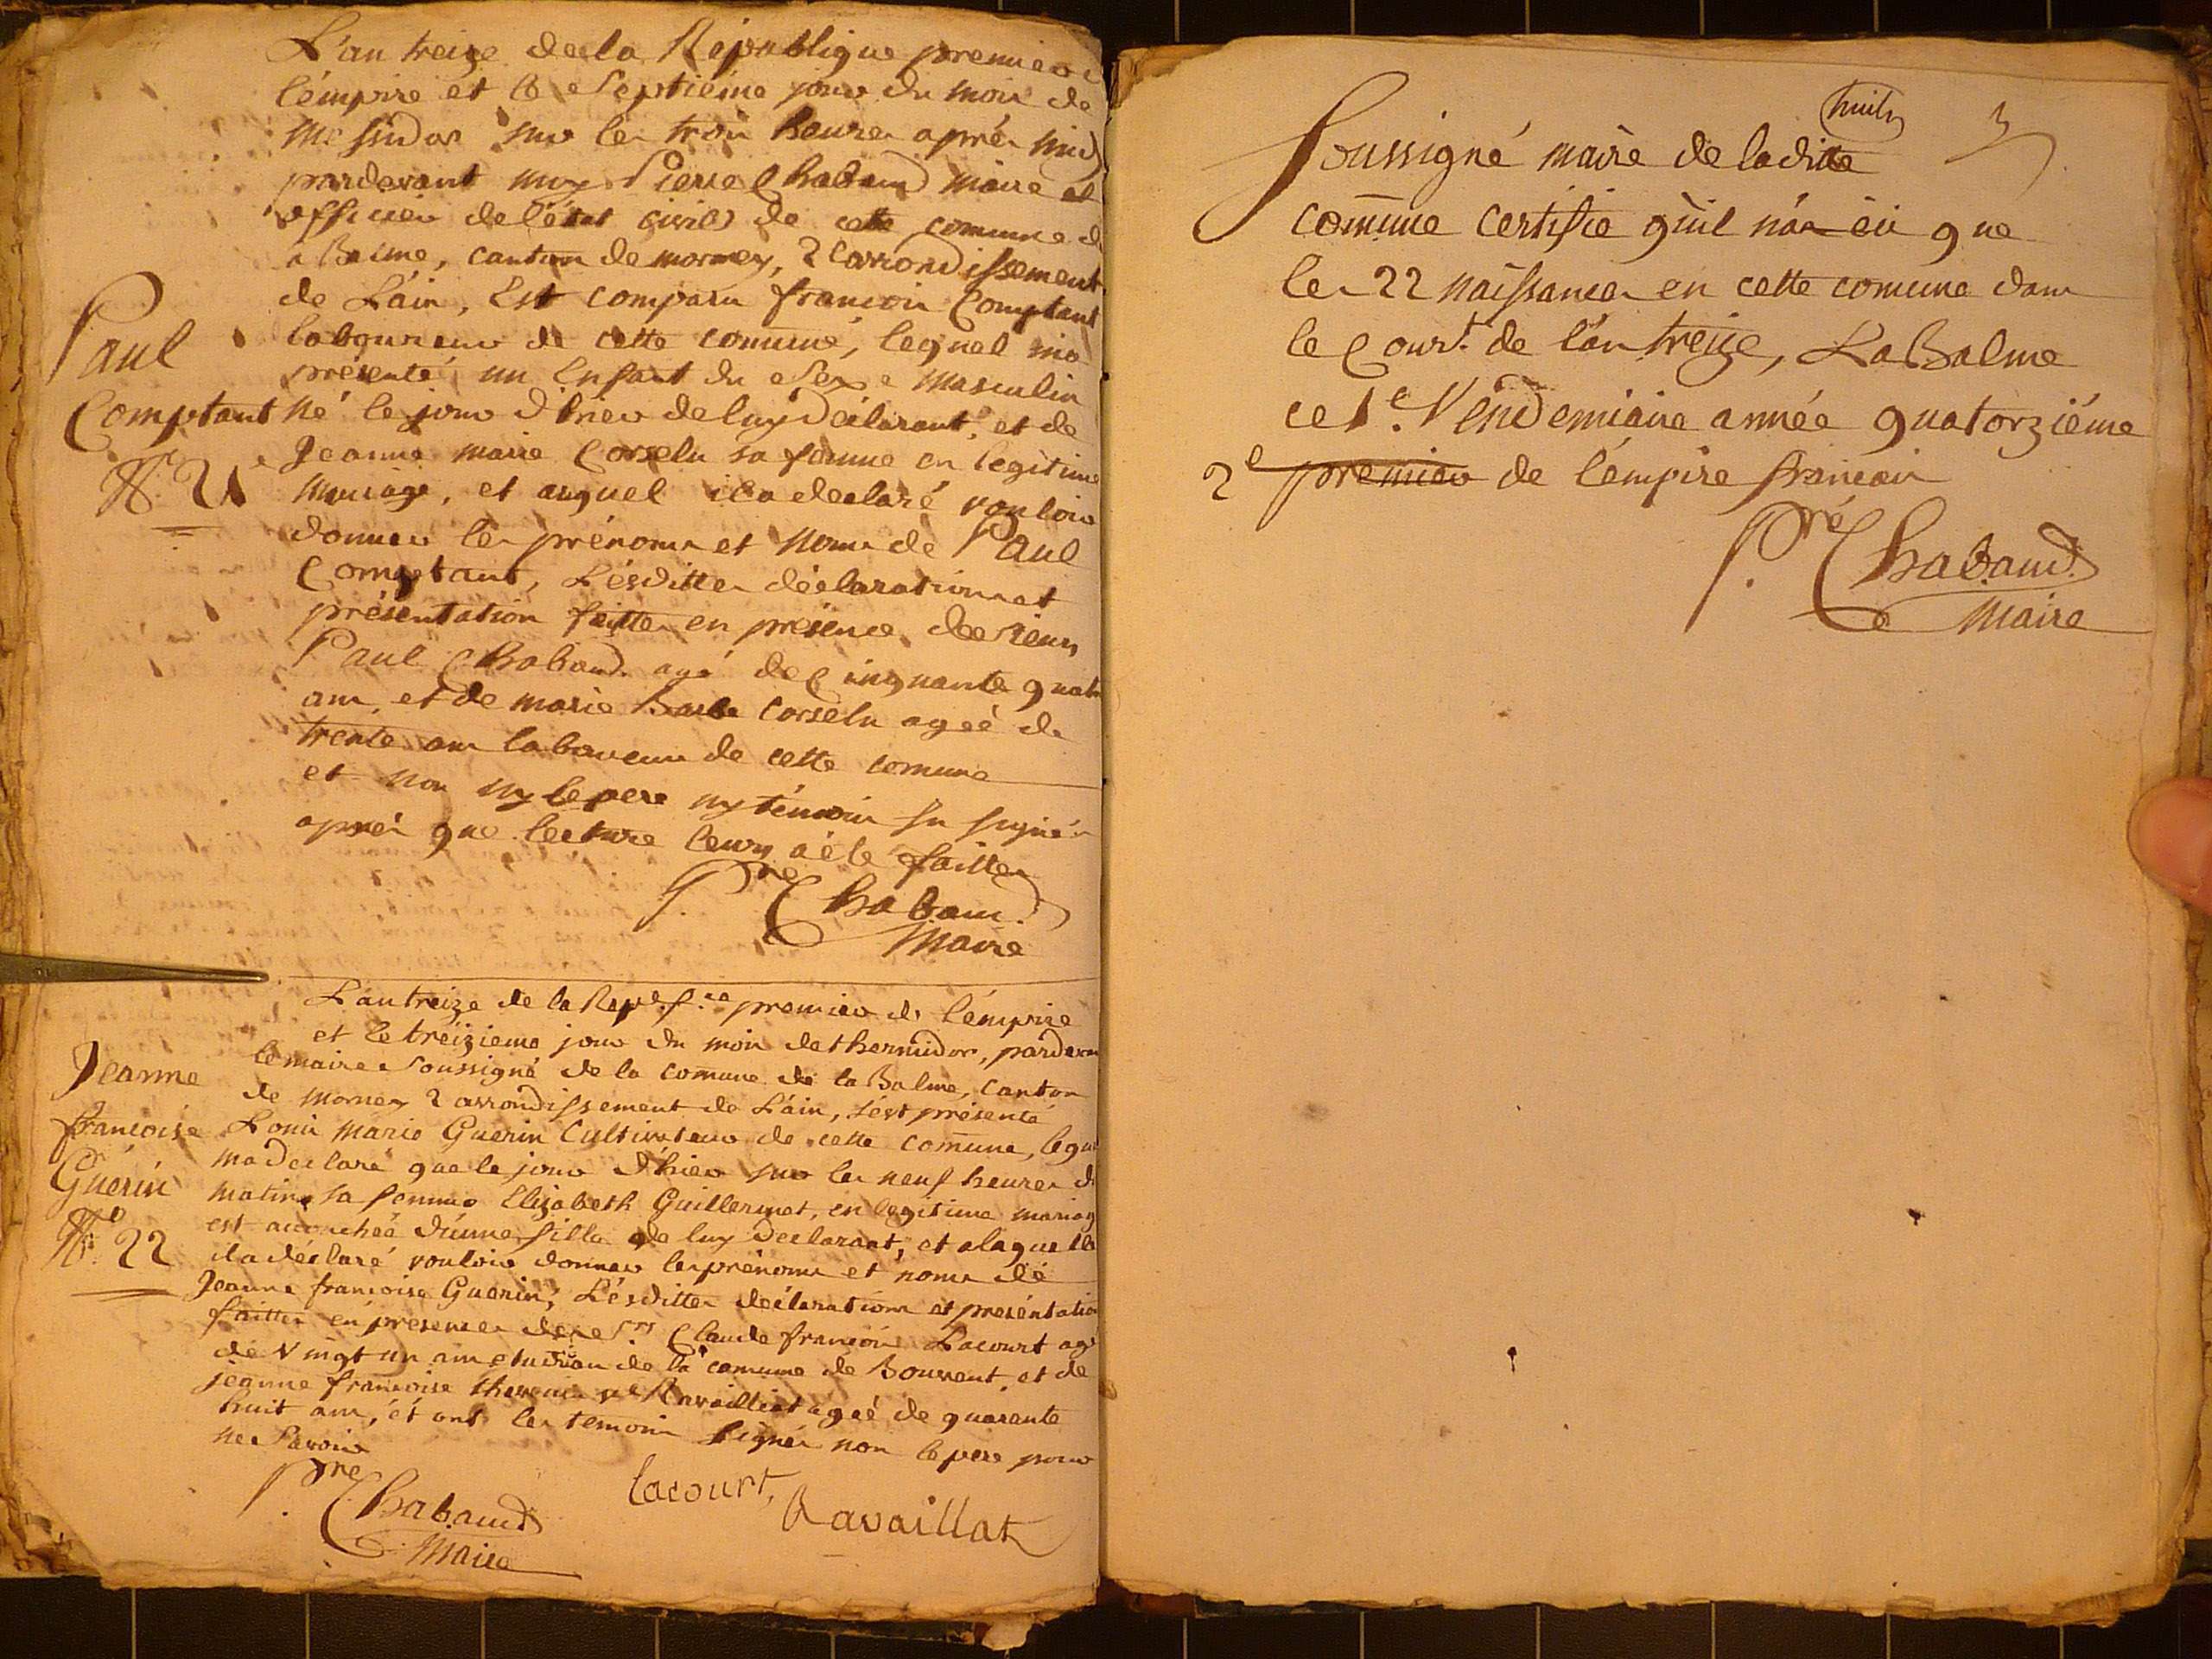 L'an treize de la République premier
l'empire et le septiéme jour du mois de
messidor sur les trois heures aprés midy
pardevant moy Pierre Chabaud maire et
officier de l'état civil de cette comune de
a Balme, canton de mornay, 2 arrondissement
de L'ain, Est comparu françois Comptant
laboureur de cette comune, lequel ma
présenté un Enfant du sexe masculin
né le jour d'hier de luy déclarant, et de
Jeanne marie Corselu sa femme en legitime
mariage, et auquel il a déclaré vouloir
donner les prénoms et noms de Paul
Comptant, Lésdittes déclarations et
présentation faittes en présence de sieurs
Paul Chabaud agé de Cinquante quatr
ans, et de marie Barbe Corselu ageé de
trente ans laboureurs de cette comune
et non ny le pere ny témoins su signér
aprés que lecture leurs a été faitte
Pre Chabaud
Maire
Paul
Comptant
No. 21
L'an treize de la Repe. f.se premier de l'émpire
et le treiziéme jour du mois de thermidor, pardevan
le maire soussigné de la comune de la Balme, canton
de mornay 2 arrondissement de L'ain, s'ést présenté
Louis Marie Guerin Cultivateur de cette comune, lequ
ma declaré que le jour d'hier sur les neuf heures d
matin, sa femme Elizabeth Guillermet, en legitime mariag
est accouchéé d'unne fille de luy declarant, et a laquelle
il a déclaré vouloir donner les prénoms et noms dé
Jeanne françoise Guerin; Lésdittes déclarations et preséntation
faittes en présences de srs Claude françois Lacourt agé
de vingt un ans étudian de la comune de Bouvent, et de
jeanne françoise thevenin ve Ravailliat ageé de quarante
huit ans, ét ont les temoins signés non le pere pour
ne savoir
Pre Chabaud
Maire
Lacourt,
Ravaillat
Jeanne
françoise
Guérin
No. 22
huit
3
Soussigné maire de laditte
comune certifie quil n'a eu que
les 22 naissances en cette comune dans
le Court. de l'an treize, La Balme
ce 1e. Vendemiaire année quatorziéme
2e premier de l'empire françois
Pre Chabaud
Maire